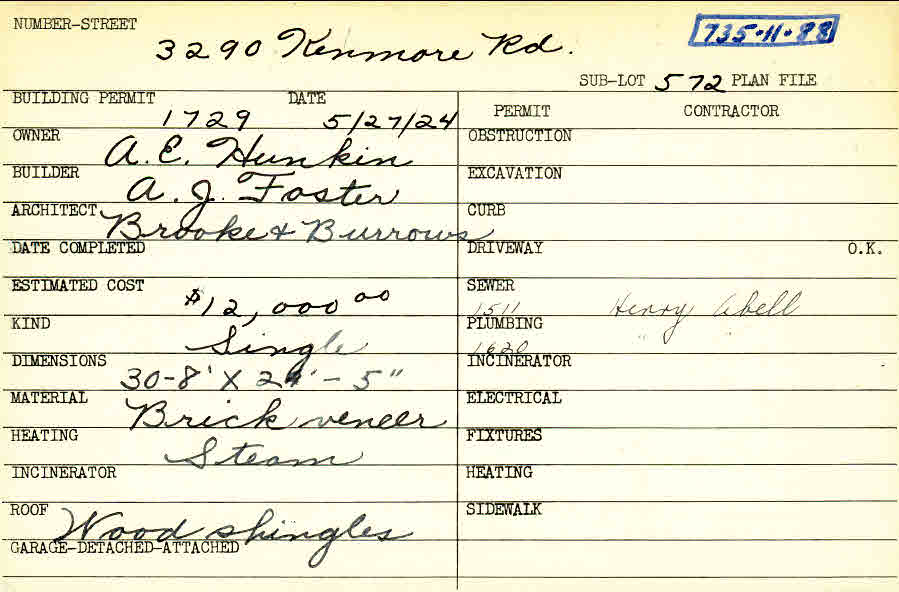 NUMBER-STREET
3290 Kenmore Rd.
735-11-88
SUB-LOT 572 PLAN FILE
BUILDING PERMIT DATE
1729 5/27/24
PERMIT CONTRACTOR
OWNER A. E. Hunkin
OBSTRUCTION
BUILDER A. J. Foster
EXCAVATION
ARCHITECT Brooke & Burrows
CURB
DATE COMPLETED
DRIVEWAY O.K.
ESTIMATED COST $12,000 00
SEWER
1511 Henry Abell
KIND Single
PLUMBING
1620 " "
DIMENSIONS 30-8' X 24' - 5"
INCINERATOR
MATERIAL Brick veneer
ELECTRICAL
HEATING Steam
FIXTURES
INCINERATOR
HEATING
ROOF Wood shingles
SIDEWALK
GARAGE-DETACHED-ATTACHED